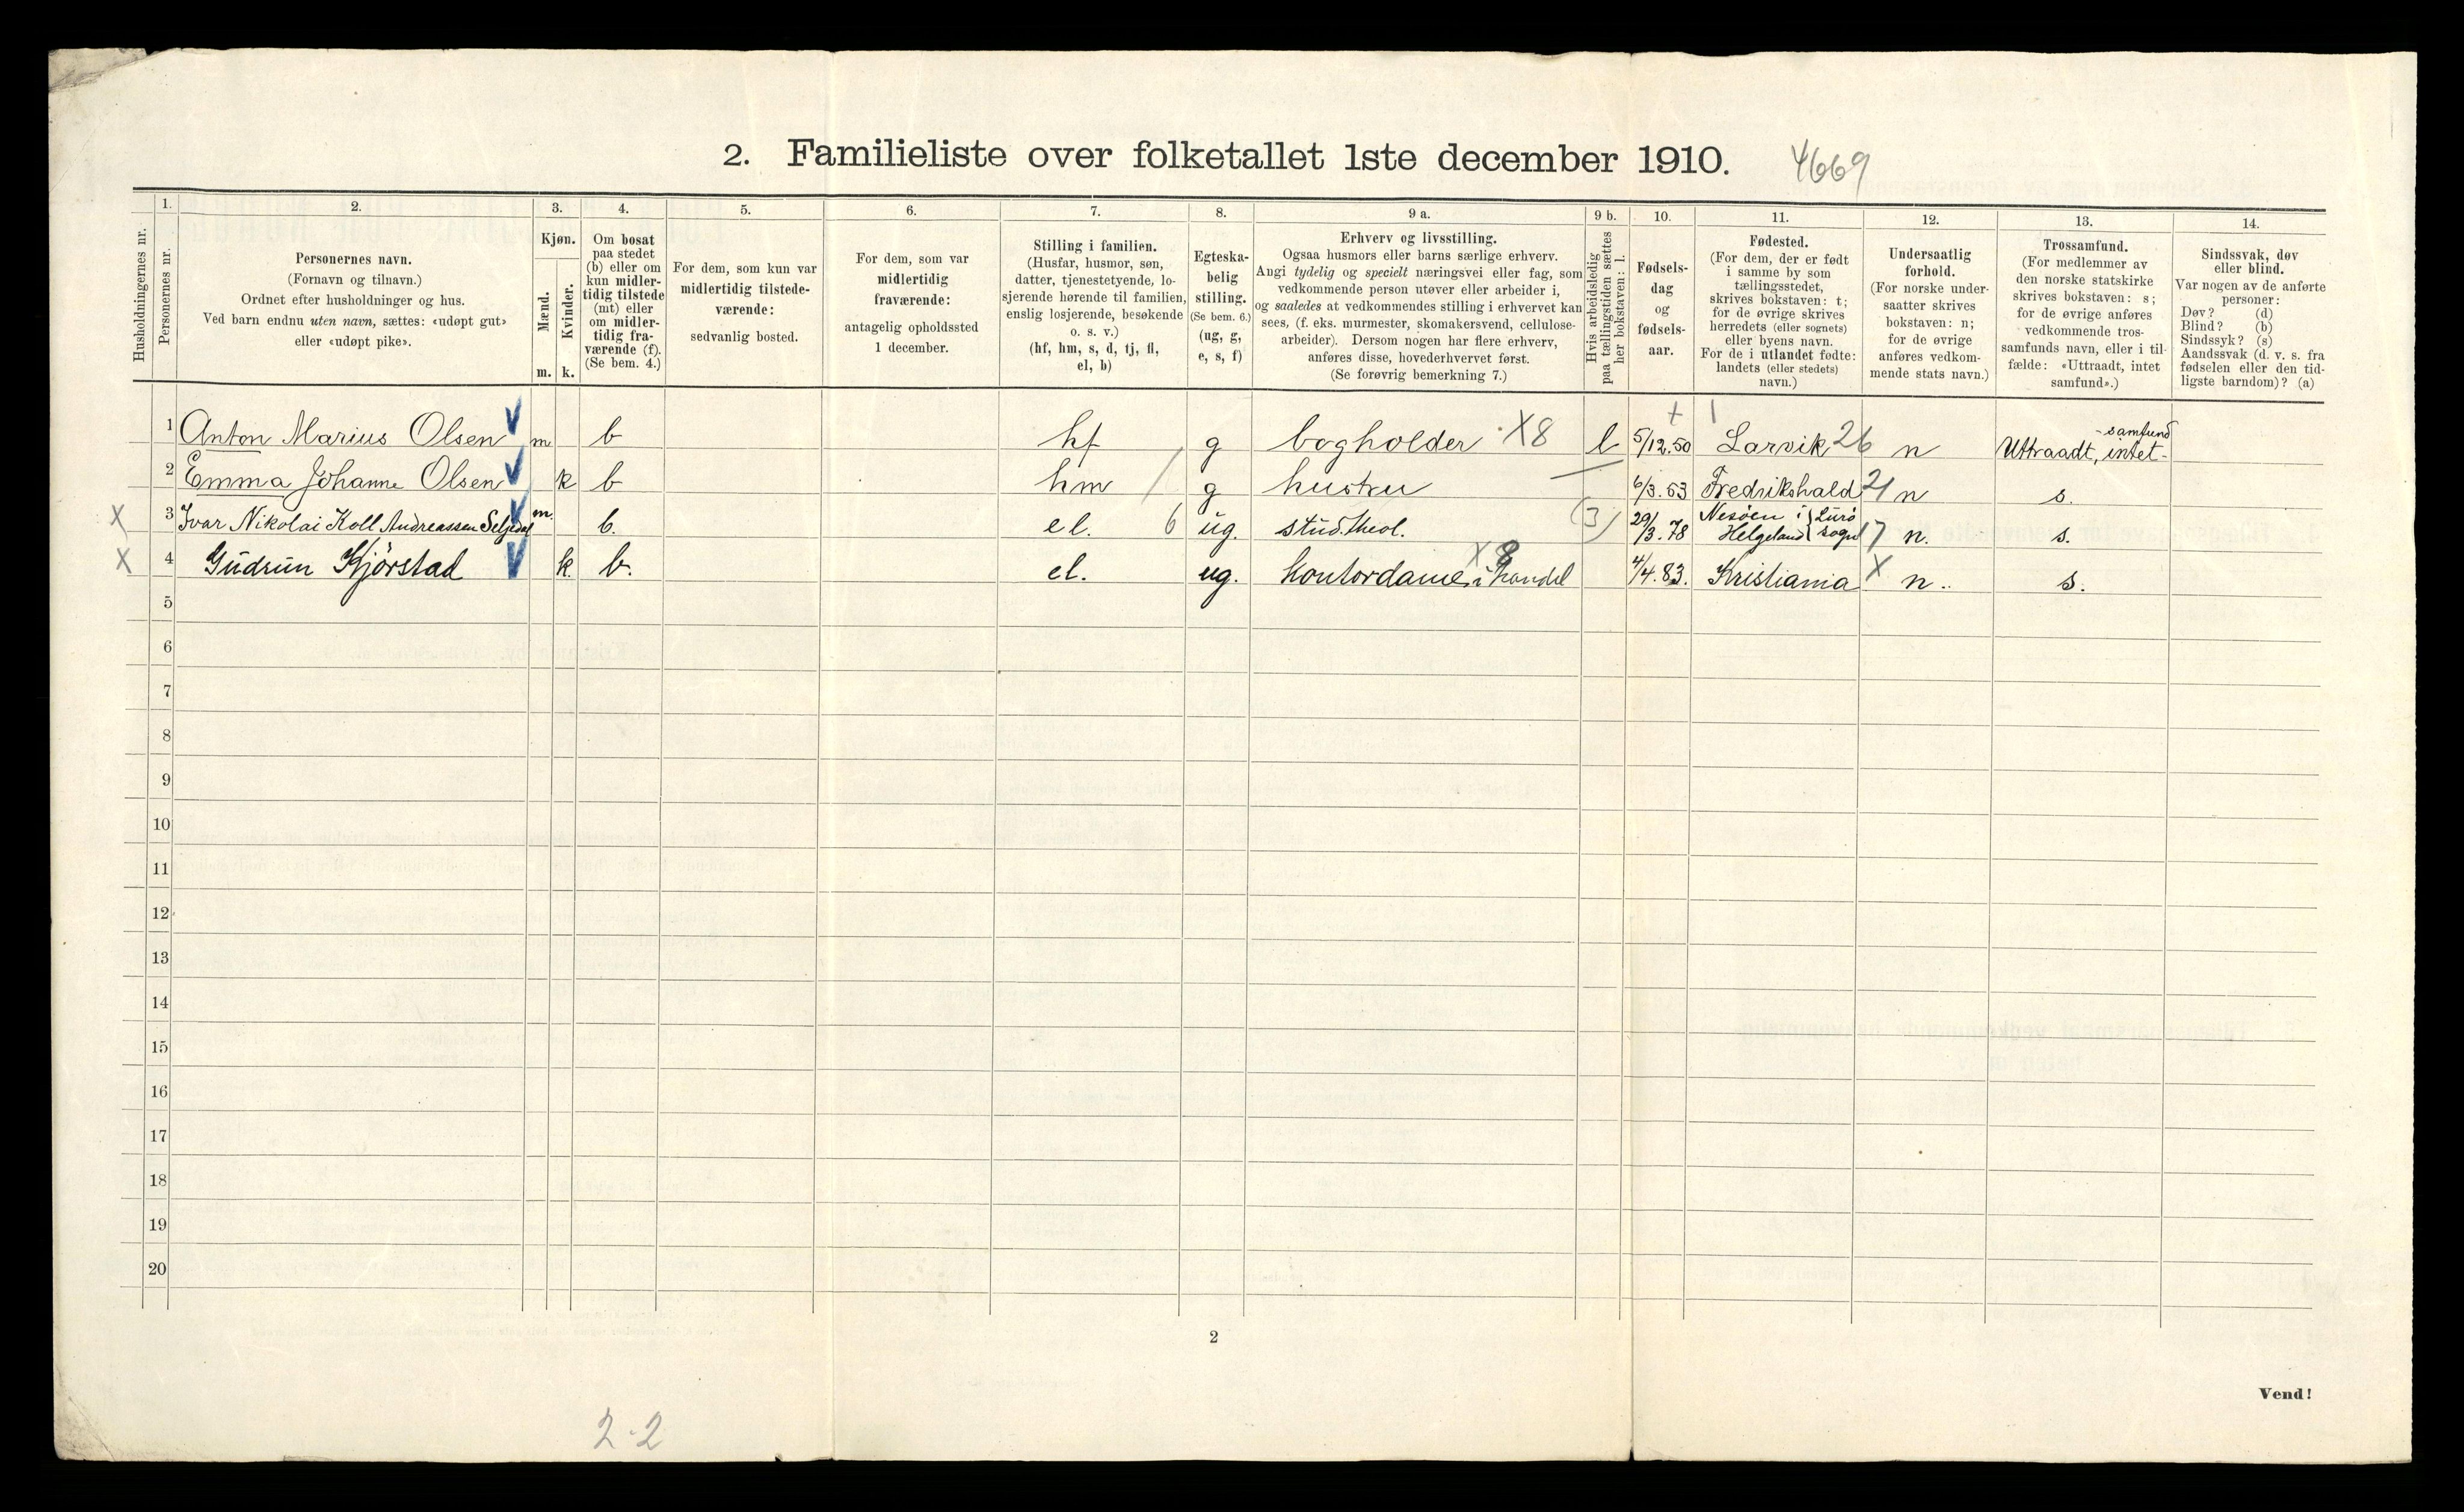 2. Familieliste over folketallet 1ste december 1910. 4669
Husholdningernes nr.
1.
Personernes nr.
2.
Personernes navn.
(Fornavn og tilnavn.)
Ordnet efter husholdninger og hus.
Ved barn endnu uten navn, sættes: «udøpt gut»
eller «udøpt pike».
3.
Kjøn.
Mænd.
Kvinder.
m. k.
4.
Om bosat
paa stedet
(b) eller om
kun midler-
tidig tilstede
(mt) eller
om midler-
tidig fra-
værende (f).
(Se bem. 4.)
5.
For dem, som kun var
midlertidig tilstede-
værende:
sedvanlig bosted.
6.
For dem, som var
midlertidig
fraværende:
antagelig opholdssted
1 december.
7.
Stilling i familien.
(Husfar, husmor, søn,
datter, tjenestetyende, lo-
sjerende hørende til familien,
enslig losjerende, besøkende
o. s. v.)
(hf, hm, s, d, tj, fl,
el, b)
8.
Egteska-
belig
stilling.
(Se bem. 6.)
(ug, g,
e, s, f)
9 a.
Erhverv og livsstilling.
Ogsaa husmors eller barns særlige erhverv.
Angi tydelig og specielt næringsvei eller fag, som
vedkommende person utøver eller arbeider i,
og saaledes at vedkommendes stilling i erhvervet kan
sees, (f. eks. murmester, skomakersvend, cellulose-
arbeider). Dersom nogen har flere erhverv,
anføres disse, hovederhvervet først.
(Se forøvrig bemerkning 7.)
9 b.
Hvis arbeidsledig
paa tællingstiden sættes
her bokstaven: l.
10.
Fødsels-
dag
og
fødsels-
aar.
11.
Fødested.
(For dem, der er født
i samme by som
tællingsstedet,
skrives bokstaven: t;
for de øvrige skrives
herredets (eller sognets)
eller byens navn.
For de i utlandet fødte:
landets (eller stedets)
navn.)
12.
Undersaatlig
forhold.
(For norske under-
saatter skrives
bokstaven: n;
for de øvrige
anføres vedkom-
mende stats navn.)
13.
Trossamfund.
(For medlemmer av
den norske statskirke
skrives bokstaven: s;
for de øvrige anføres
vedkommende tros-
samfunds navn, eller i til-
fælde: «Uttraadt, intet
samfund».)
14.
Sindssvak, døv
eller blind.
Var nogen av de anførte
personer:
Døv? (d)
Blind? (b)
Sindssyk? (s)
Aandssvak (d. v. s. fra
fødselen eller den tid-
ligste barndom)? (a)
1 Anton Marius Olsen m b hf g bogholder X8 l 5/12.50 Larvik 26 n Uttraadt, intet-samfund
2 Emma Johanne Olsen k b hm g hustru 6/3.53 Fredrikshald 21 n s.
X 3 Ivar Nikolai Koll Andreassen m. b. el. 6 ug. stud. theol. (3) 29/3.78 Nesöen i Helgeland Lurö sogn 17 n. s.
X 4 Gudrun Kjörstad k. b. el. ug. kontordame i handel X8 4/4.83. Kristiania X n. s.
5
6
7
8
9
10
11
12
13
14
15
16
17
18
19
20
2
Vend!
2-2